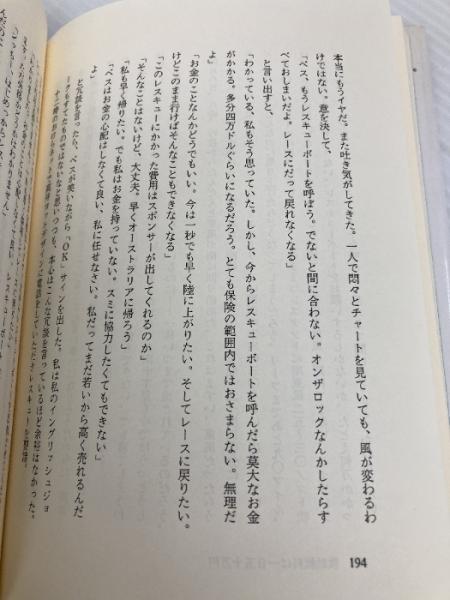 本当にもうイヤだ。また吐き気がしてきた。一人で悶々とチャートを見ていても、風が変わるわ
けではない。意を決して、
「ベス、もうレスキューボートを呼ぼう。でないと間に合わない。オンザロックなんかしたらす
べておしまいだよ。レースにだって戻れなくなる」
と言い出すと、
「わかっている、私もそう思っていた。しかし、今からレスキューボートを呼んだら莫大なお金
がかかる。多分四万ドルぐらいになるだろう。とても保険の範囲内ではおさまらない。無理だ
よ」
「お金のことなんかどうでもいい。今は一秒でも早く陸に上がりたい。そしてレースに戻りたい。
けどこのまま行けばそんなこともできなくなる」
「このレスキューにかかった費用はスポンサーが出してくれるのか」
「そんなことはないけど、大丈夫、早くオーストラリアに帰ろう」
「私も早く帰りたい。でも私はお金を持っていない。スミに協力したくてもできない」
「ベスはお金の心配はしなくて良い、私に任せなさい。私だってまだ若いから高く売れるんだ
よ」
と冗談を言ったら、ベスが笑いながら「OK」サインを出した。私は私のイングリッシュジョ
ークもすてたものではないなと思いつつも、本心はこんな冗談を言っているほど余裕はなかった。
194